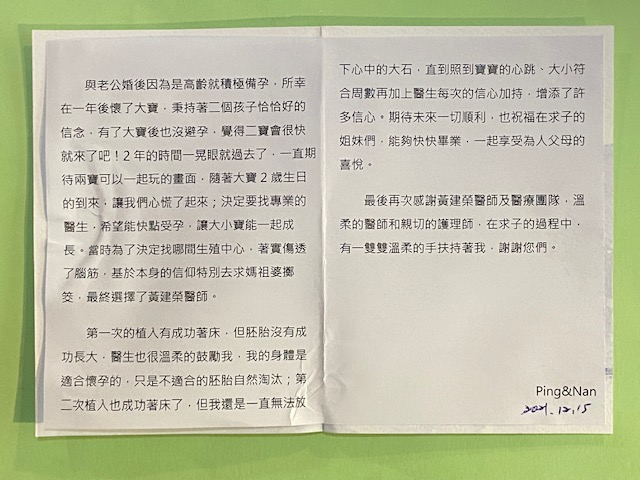 與老公婚後因為是高齡就積極備孕，所幸
在一年後懷了大寶，秉持著二個孩子恰恰好的
信念，有了大寶後也沒避孕，覺得二寶會很快
就來了吧！2 年的時間一晃眼就過去了，一直期
待兩寶可以一起玩的畫面，隨著大寶 2 歲生日
的到來，讓我們心慌了起來；決定要找專業的
醫生，希望能快點受孕，讓大小寶能一起成
長。當時為了決定找哪間生殖中心，著實傷透
了腦筋，基於本身的信仰特別去求媽祖婆擲
筊，最終選擇了黃建榮醫師。
第一次的植入有成功著床，但胚胎沒有成
功長大，醫生也很溫柔的鼓勵我，我的身體是
適合懷孕的，只是不適合的胚胎自然淘汰；第
二次植入也成功著床了，但我還是一直無法放
下心中的大石，直到照到寶寶的心跳、大小符
合周數再加上醫生每次的信心加持，增添了許
多信心。期待未來一切順利，也祝福在求子的
姐妹們，能夠快快畢業，一起享受為人父母的
喜悅。
最後再次感謝黃建榮醫師及醫療團隊，溫
柔的醫師和親切的護理師，在求子的過程中，
有一雙雙溫柔的手扶持著我，謝謝您們。
Ping&Nan
2021.12.15